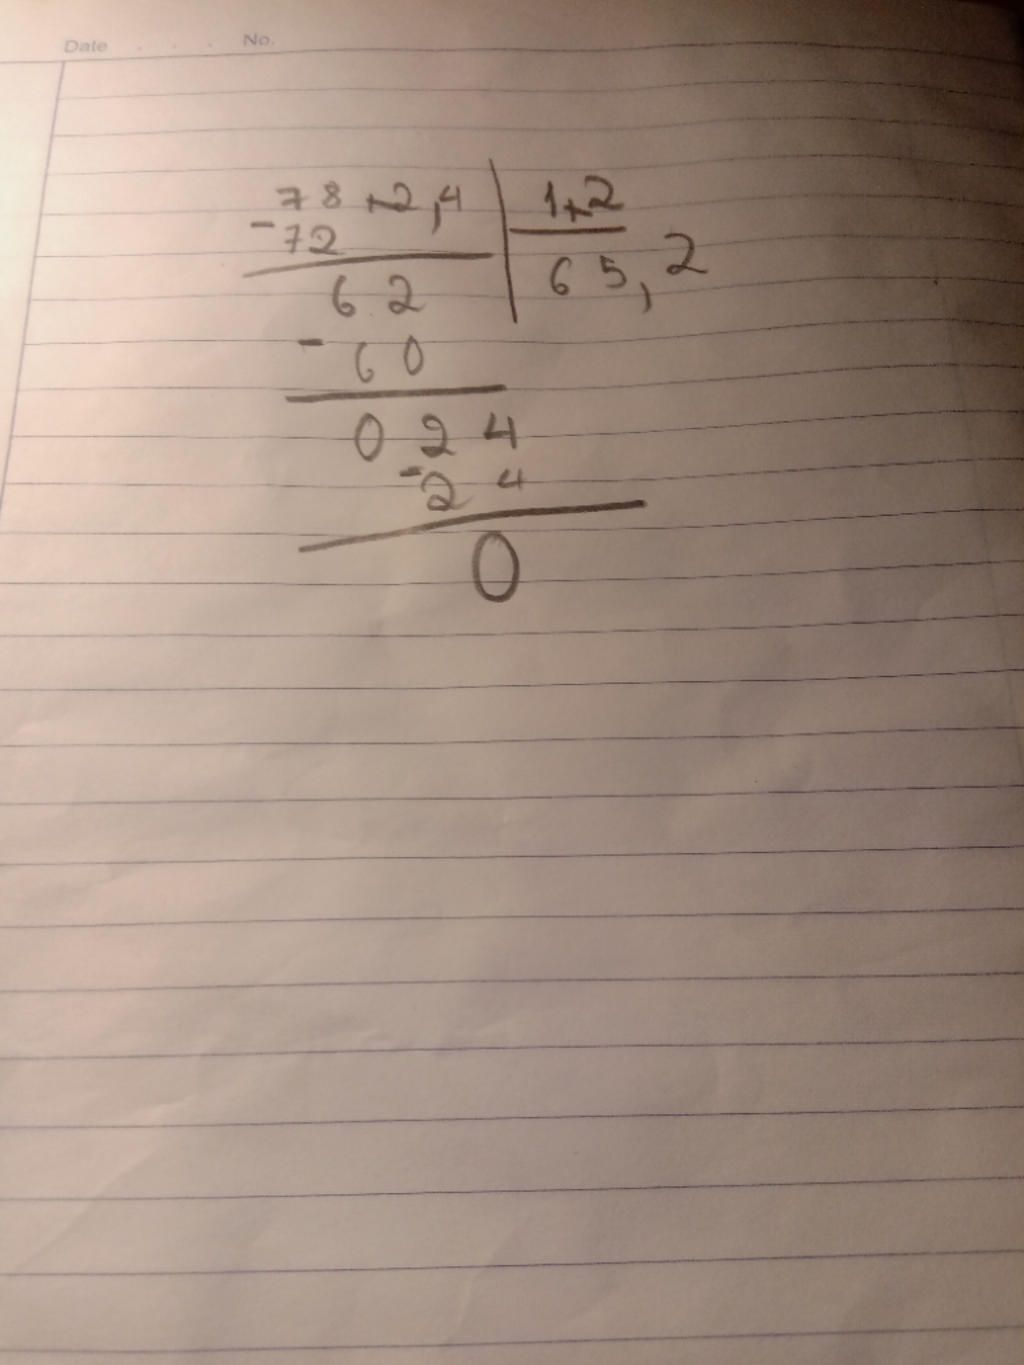 Date . . . No.
78,2,4 1,2
-72
65,2
62
-60
024
-24
0